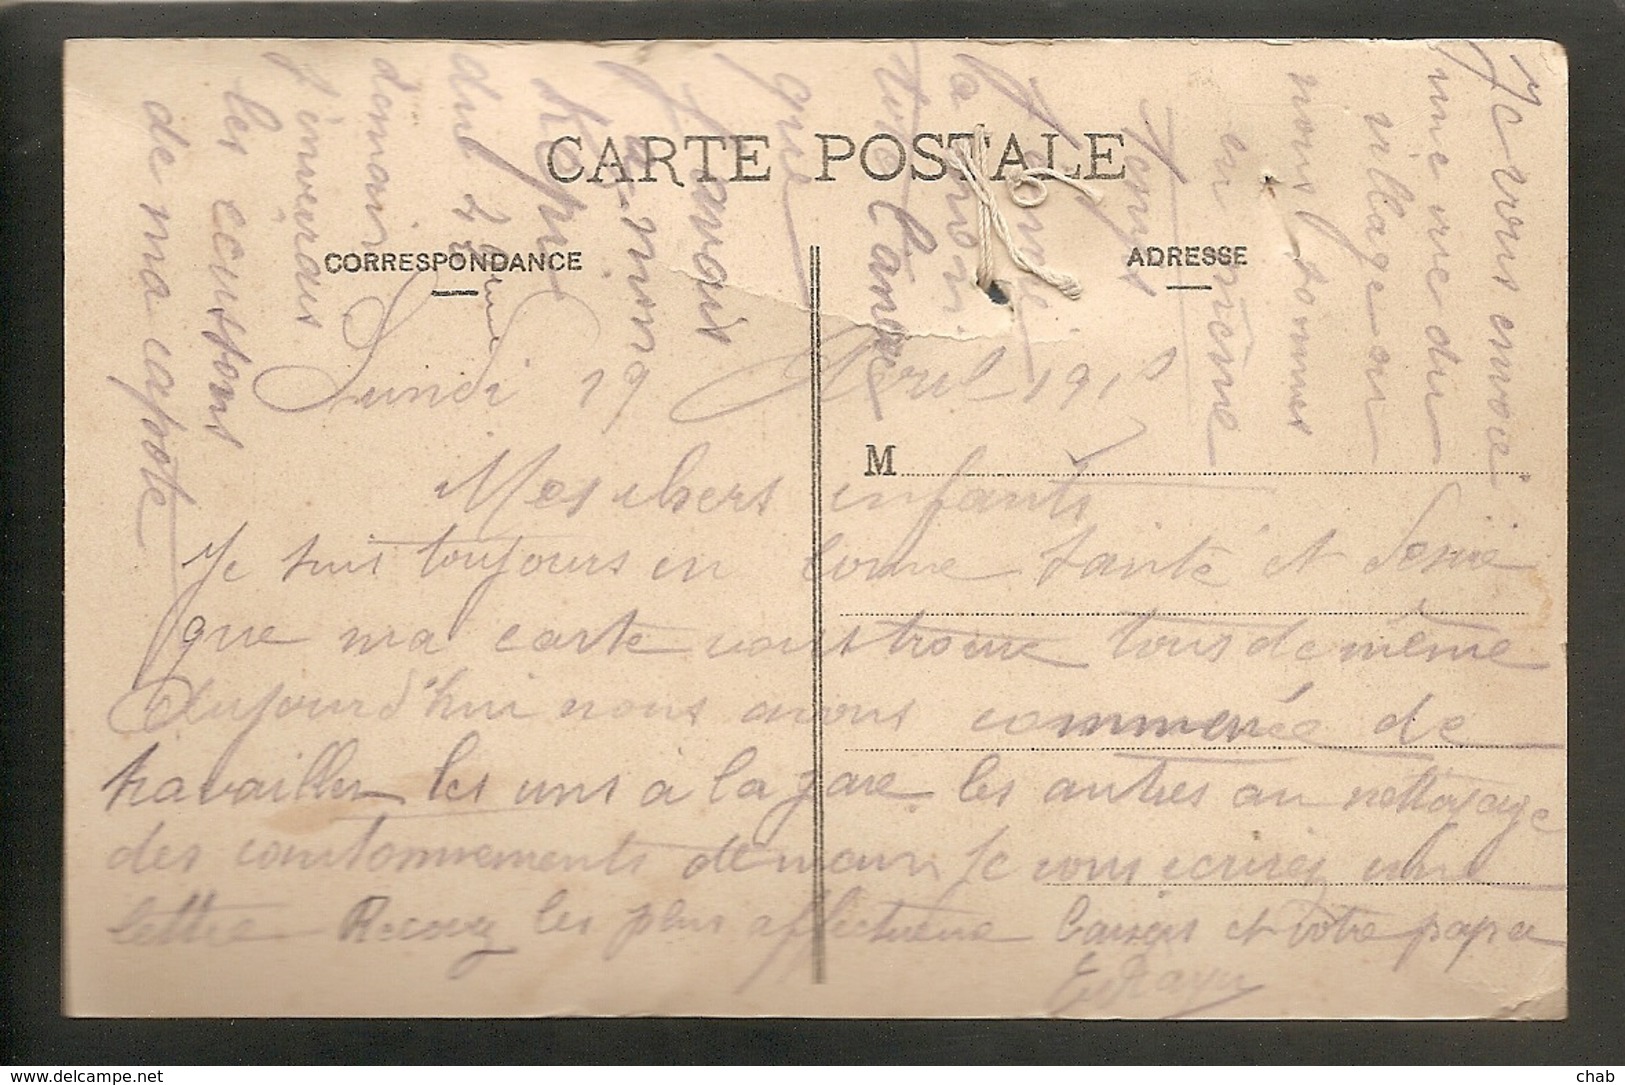 CARTE POSTALE
CORRESPONDANCE
ADRESSE
M
Lundi 19 Avril 1915
Mes chers enfants
Je suis toujours en bonne santé et désire
que ma carte vous trouve tous de même
Aujourd'hui nous avons commencé de
travailler les uns à la gare les autres au nettoyage
des cantonnements demain Je vous écrirez une
lettre Recevez les plus affectueux baisers et votre papa
Je vous envoie
une vue du
village où
nous sommes
en même
temps
Je
la
que
Jamais
du 2
demain
J'enverrais
les ecussons
de ma capote
delcampe.net
chab